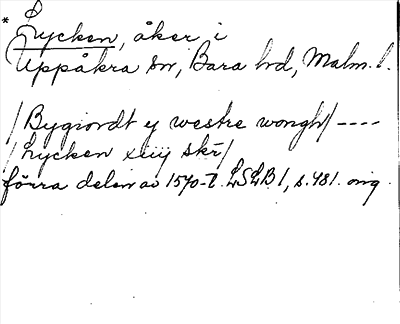 * Lycken, åker, i
Uppåkra sn, Bara hd, Malm. l.
/Bygiordt y westre wongh/ ----
/Lycken xiiij skr/
förra delen av 1570-t. LSLB 1, s. 481. orig.